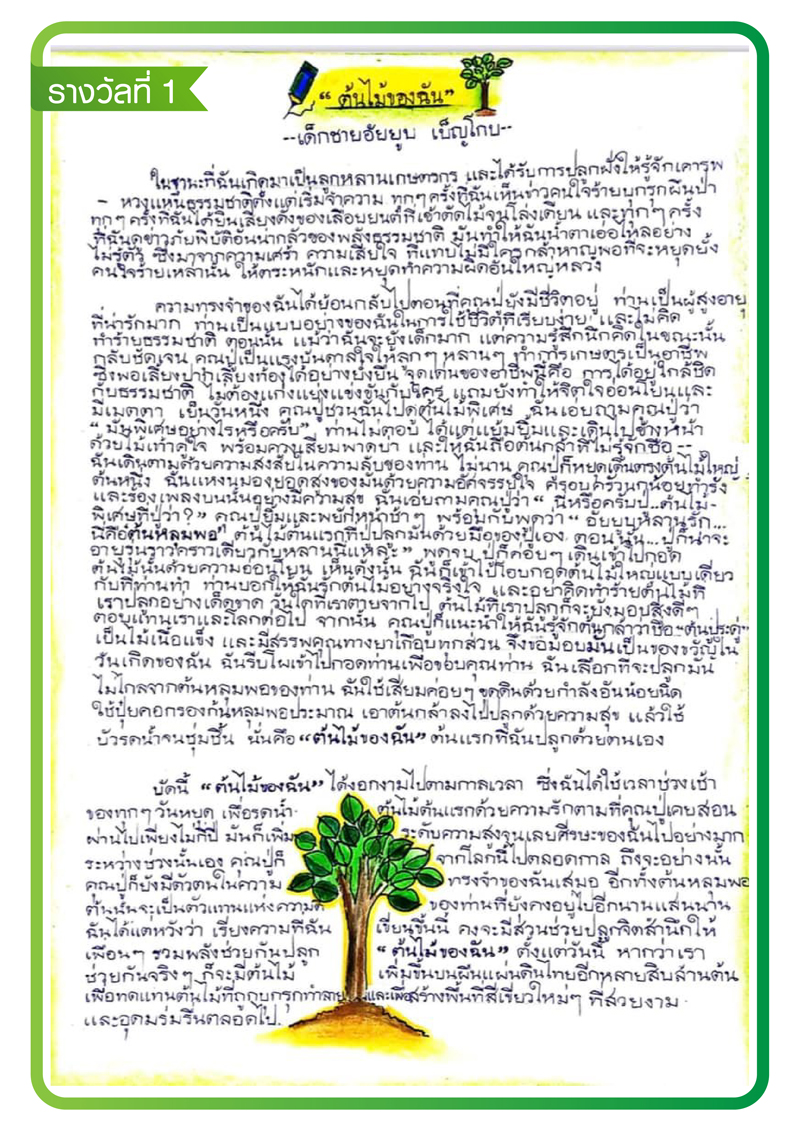 รางวัลที่ 1
“ ต้นไม้ของฉัน”
--เด็กชายอัยยูบ เบ็ญโกบ--
ในฐานะที่ฉันเกิดมาเป็นลูกหลานเกษตรกร และได้รับการปลูกฝังให้รู้จักเคารพ
- หวงแหนธรรมชาติตั้งแต่เริ่มจำความ ทุกๆครั้งที่ฉันเห็นข่าวคนใจร้ายบุกรุกผืนป่า
ทุกๆครั้งที่ฉันได้ยินเสียงดังของเลื่อยยนต์ที่เข้าตัดไม้จนโล่งเตียน และทุกๆครั้ง
ที่ฉันดูข่าวภัยพิบัติอันน่ากลัวของพลังธรรมชาติ มันทำให้ฉันน้ำตาเอ่อไหลอย่าง
ไม่รู้ตัว ซึ่งมาจากความเศร้า ความเสียใจ ที่แทบไม่มีใครกล้าหาญพอที่จะหยุดยั้ง
คนใจร้ายเหล่านั้น ให้ตระหนักและหยุดทำความผิดอันใหญ่หลวง
ความทรงจำของฉันได้ย้อนกลับไปตอนที่คุณปู่ยังมีชีวิตอยู่ ท่านเป็นผู้สูงอายุ
ที่น่ารักมาก ท่านเป็นแบบอย่างของฉันในการใช้ชีวิตที่เรียบง่าย และไม่คิด
ทำร้ายธรรมชาติ ตอนนั้น แม้ว่าฉันจะยังเด็กมาก แต่ความรู้สึกนึกคิดในขณะนั้น
กลับชัดเจน คุณปู่เป็นแรงบันดาลใจให้ลูกๆหลานๆ ทำการเกษตรเป็นอาชีพ
ซึ่งพอเลี้ยงปากเลี้ยงท้องได้อย่างยั่งยืน จุดเด่นของอาชีพนี้คือ การได้อยู่ใกล้ชิด
กับธรรมชาติ ไม่ต้องแก่งแย่งแข่งขันกับใคร แถมยังทำให้จิตใจอ่อนโยนและ
มีเมตตา เย็นวันหนึ่ง คุณปู่ชวนฉันไปดูต้นไม้พิเศษ ฉันเอ่ยถามคุณปู่ว่า
“ มันพิเศษอย่างไรหรือครับ” ท่านไม่ตอบ ได้แต่แย้มยิ้มและเดินไปข้างหน้า
ด้วยไม้เท้าคู่ใจ พร้อมความเสียมพาดบ่า และให้ฉันถือต้นกล้าที่ไม่รู้จักชื่อ --
ฉันเดินตามด้วยความสงสัยในความลับของท่าน ไม่นาน คุณปู่ก็หยุดเดินตรงต้นไม้ใหญ่
ต้นหนึ่ง ฉันแหงนมองยอดสูงของมันด้วยความอัศจรรย์ใจ ครอบครัวนกน้อยทำรัง
และร้องเพลงบนนั้นอย่างมีความสุข ฉันเอ่ยถามคุณปู่ว่า “ นี่หรือครับปู่..ต้นไม้-
พิเศษที่ปู่ว่า?” คุณปู่ยิ้มและพยักหน้าช้าๆ พร้อมกับพูดว่า “ อัยยูบหลานรัก...
นี่คือต้นหลุมพอ” ต้นไม้ต้นแรกที่ปู่ปลูกมันด้วยมือของปู่เอง ตอนนั้น...ปู่ก็น่าจะ
อายุรุ่นราวคราวเดียวกับหลานนี่แหละ” พูดจบ ปู่ก็ค่อยๆเดินเข้าไปกอด
ต้นไม้นั้นด้วยความอ่อนโยน เห็นดังนั้น ฉันก็เข้าไปโอบกอดต้นไม้ใหญ่แบบเดียว
กับที่ท่านทำ ท่านบอกให้ฉันรักต้นไม้อย่างจริงใจ และอย่าคิดทำร้ายต้นไม้ที่
เราปลูกอย่างเด็ดขาด วันใดที่เราตายจากไป ต้นไม้ที่เราปลูกก็จะยังมอบสิ่งดีๆ
ตอบแทนเราและโลกต่อไป จากนั้น คุณปู่ก็แนะนำให้ฉันรู้จักต้นกล้าว่าชื่อ“ต้นประดู่”
เป็นไม้เนื้อแข็ง และมีสรรพคุณทางยาเกือบทุกส่วน จึงขอมอบมันเป็นของขวัญใน
วันเกิดของฉัน ฉันรีบโผเข้าไปกอดท่านเพื่อขอบคุณท่าน ฉันเลือกที่จะปลูกมัน
ไม่ไกลจากต้นหลุมพอของท่าน ฉันใช้เสียมค่อยๆขุดดินด้วยกำลังอันน้อยนิด
ใช้ปุ๋ยคอกรองก้นหลุมพอประมาณ เอาต้นกล้าลงไปปลูกด้วยความสุข แล้วใช้
บัวรดน้ำจนชุ่มชื้น นั่นคือ “ต้นไม้ของฉัน” ต้นแรกที่ฉันปลูกด้วยตนเอง
บัดนี้ “ต้นไม้ของฉัน” ได้งอกงามไปตามกาลเวลา ซึ่งฉันได้ใช้เวลาช่วงเช้า
ของทุกๆวันหยุด เพื่อรดน้ำ ต้นไม้ต้นแรกด้วยความรักตามที่คุณปู่เคยสอน
ผ่านไปเพียงไม่กี่ปี มันก็เพิ่ม ระดับความสูงจนเลยศีรษะของฉันไปอย่างมาก
ระหว่างช่วงนั้นเอง คุณปู่ก็ จากโลกนี้ไปตลอดกาล ถึงจะอย่างนั้น
คุณปู่ก็ยังมีตัวตนในความ ทรงจำของฉันเสมอ อีกทั้งต้นหลุมพอ
ต้นนั้นจะเป็นตัวแทนแห่งความดี ของท่านที่ยังคงอยู่ไปอีกนานแสนนาน
ฉันได้แต่หวังว่า เรียงความที่ฉัน เขียนขึ้นนี้ คงจะมีส่วนช่วยปลูกจิตสำนึกให้
เพื่อนๆ รวมพลังช่วยกันปลูก “ ต้นไม้ของฉัน” ตั้งแต่วันนี้ หากว่าเรา
ช่วยกันจริงๆ ก็จะมีต้นไม้ เพิ่มขึ้นบนผืนแผ่นดินไทยอีกหลายสิบล้านต้น
เพื่อทดแทนต้นไม้ที่ถูกบุกรุกทำลาย และเพื่อสร้างพื้นที่สีเขียวใหม่ๆ ที่สวยงาม
และอุดมร่มรื่นตลอดไป.